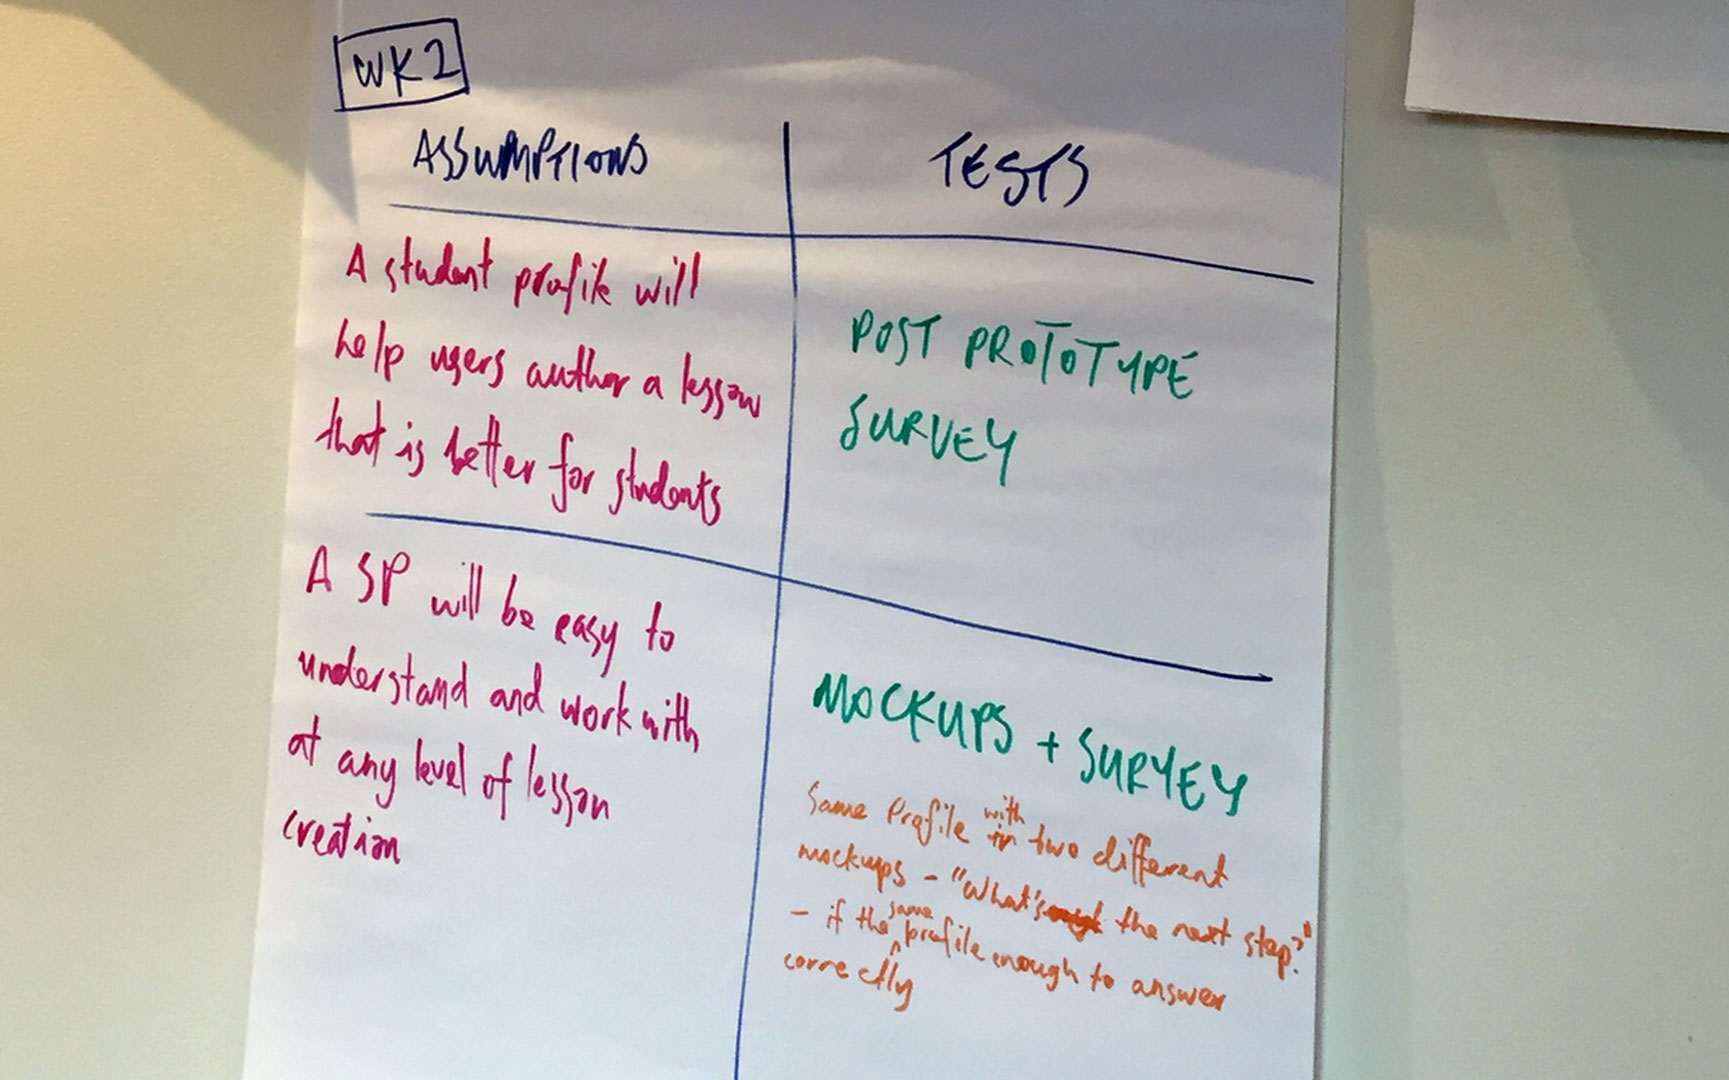 WK2
ASSUMPTIONS
TESTS
A student profile will
help users author a lesson
that is better for students
POST PROTOTYPE
SURVEY
A SP will be easy to
understand and work with
at any level of lesson
creation
MOCKUPS + SURVEY
Same Profile with two different
mockups - "What's the next step?"
- if the same profile enough to answer
correctly